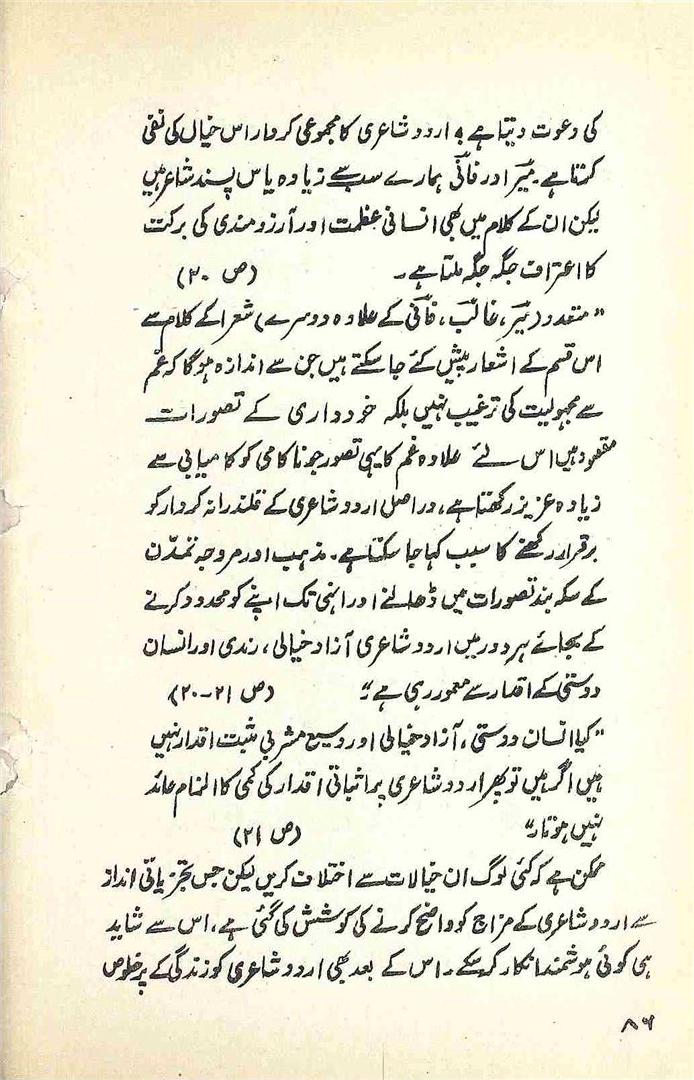 کی دعوت دیتا ہے، اردو شاعری کا مجموعی کردار اس خیال کی نفی
کرتا ہے۔ میر اور فانی ہمارے سب سے زیادہ یاس پسند شاعر ہیں
لیکن ان کے کلام میں بھی انسانی عظمت اور آرزومندی کی برکت
کا اعتراف جگہ جگہ ملتا ہے۔ (ص ۲۰)
"متعدد (میر، غالب، فانی کے علاوہ دوسرے) شعرا کے کلام سے
اس قسم کے اشعار پیش کئے جا سکتے ہیں جن سے اندازہ ہوگا کہ غم
سے مجہولیت کی ترغیب نہیں بلکہ خودداری کے تصورات
مقصود ہیں اس لئے علاوہ غم کا یہی تصور جو ناکامی کو کامیابی سے
زیادہ عزیز رکھتا ہے، دراصل اردو شاعری کے قلندرانہ کردار کو
برقرار رکھنے کا سبب کہا جا سکتا ہے۔ مذہب اور مروجہ تمدّن
کے سکہ بند تصورات میں ڈھلنے اور انہی تک اپنے کو محدود کرنے
کے بجائے ہر دور میں اردو شاعری آزاد خیالی، رندی اور انسان
دوستی کے اقدار سے معمور رہی ہے۔" (ص ۲۱-۲۰)
"کیا انسان دوستی، آزاد خیالی اور وسیع مشربی مثبت اقدار نہیں
ہیں اگر ہیں تو پھر اردو شاعری پر اثباتی اقدار کی کمی کا الزام عائد
نہیں ہوتا۔" (ص ۲۱)
ممکن ہے کہ کئی لوگ ان خیالات سے اختلاف کریں لیکن جس تجزیاتی انداز
سے اردو شاعری کے مزاج کو واضح کرنے کی کوشش کی گئی ہے، اس سے شاید
ہی کوئی ہوشمند انکار کر سکے۔ اس کے بعد بھی اردو شاعری کو زندگی کے پرخلوص
۸۶